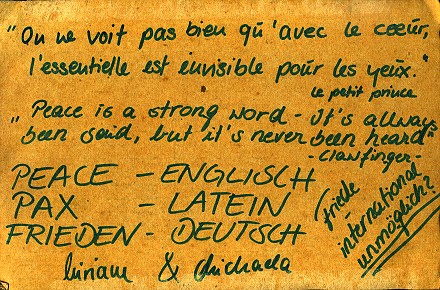 "On ne voit pas bien qu'avec le coeur,
l'essentielle est invisible pour les yeux."
le petit prince
"Peace is a strong word - it's allways
been said, but it's never been heard"
- clawfinger -
PEACE - ENGLISCH
PAX - LATEIN
FRIEDEN - DEUTSCH
(friede
-
international
unmöglich?
Miriam & Michaela